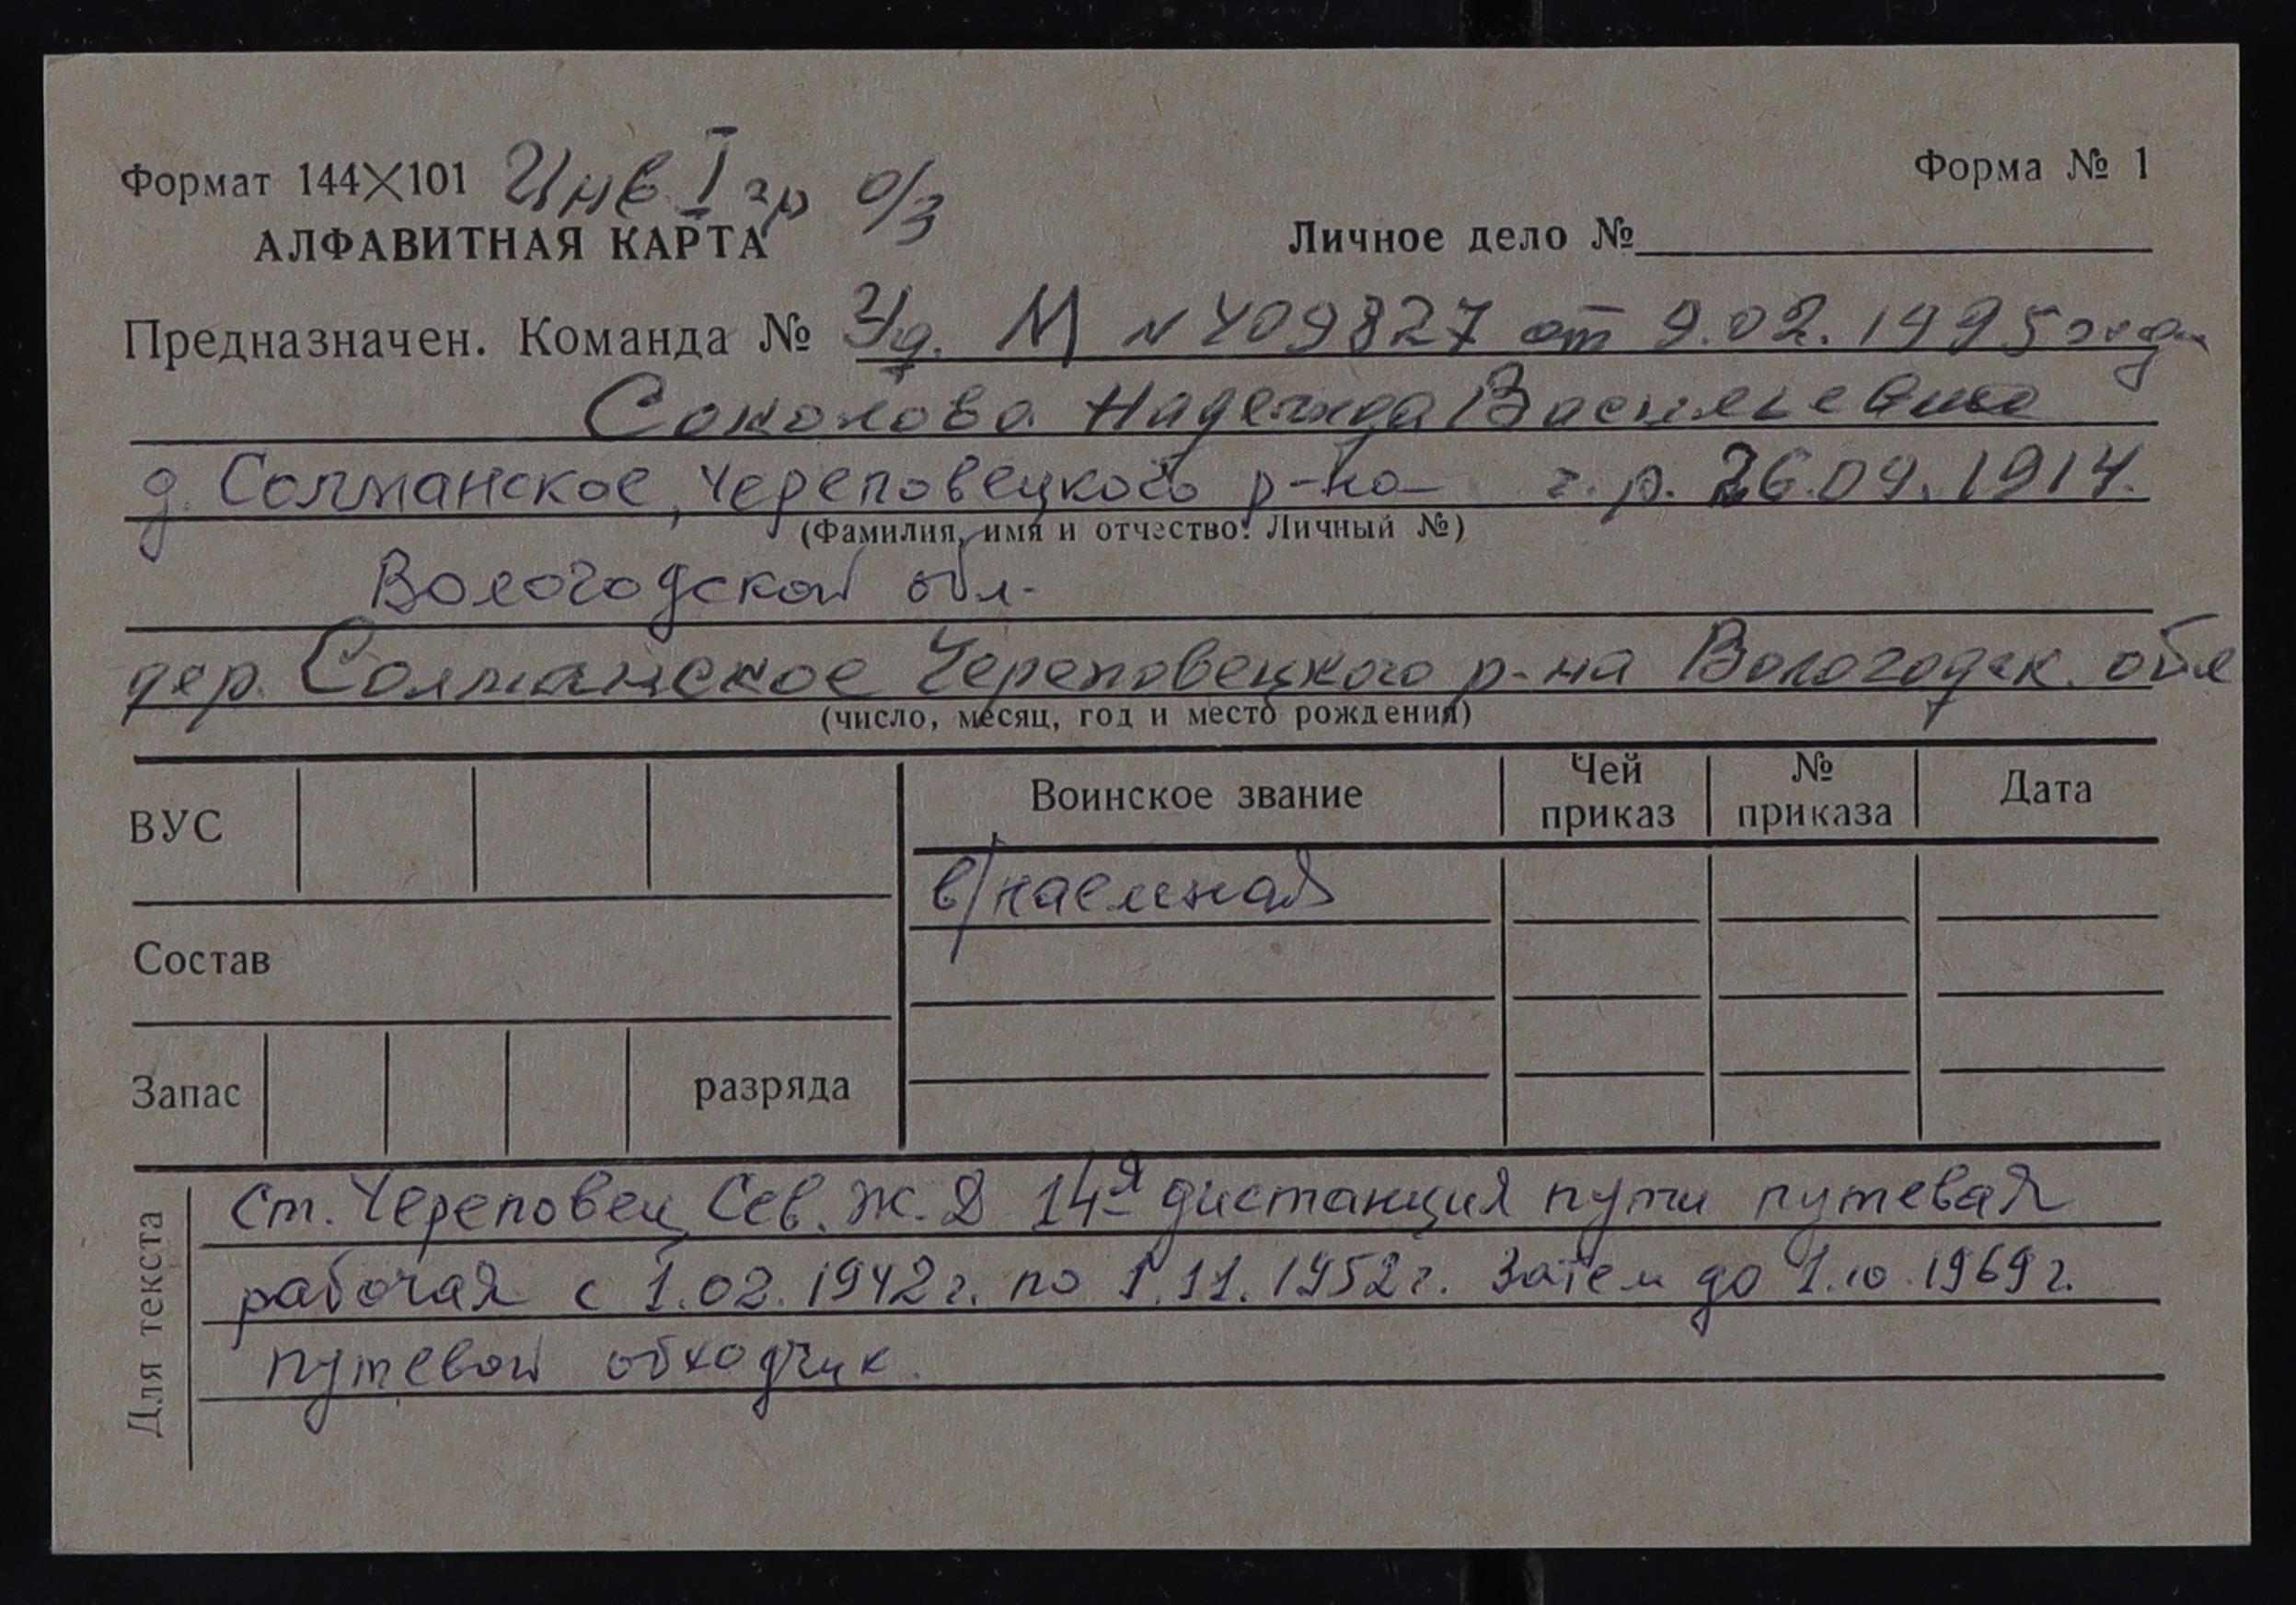 Формат 144×101 Инв. I гр о/з
Форма № 1
АЛФАВИТНАЯ КАРТА
Личное дело №
Предназначен. Команда № Уд. М № 409827 от 9.02.1995 года
Соколова Надежда Васильевна
д. Солманское, Череповецкого р-на г.р. 26.09.1914.
(Фамилия, имя и отчество. Личный №)
Вологодской обл.
дер. Солманское Череповецкого р-на Вологодск. обл
(число, месяц, год и место рождения)
ВУС
Воинское звание
Чей приказ
№ приказа
Дата
в/наемная
Состав
Запас
разряда
Для текста
Ст. Череповец Сев. Ж.Д 14я дистанция пути путевая
рабочая с 1.02.1942г. по 1.11.1952г. Затем до 1.10.1969г.
путевой обходчик.